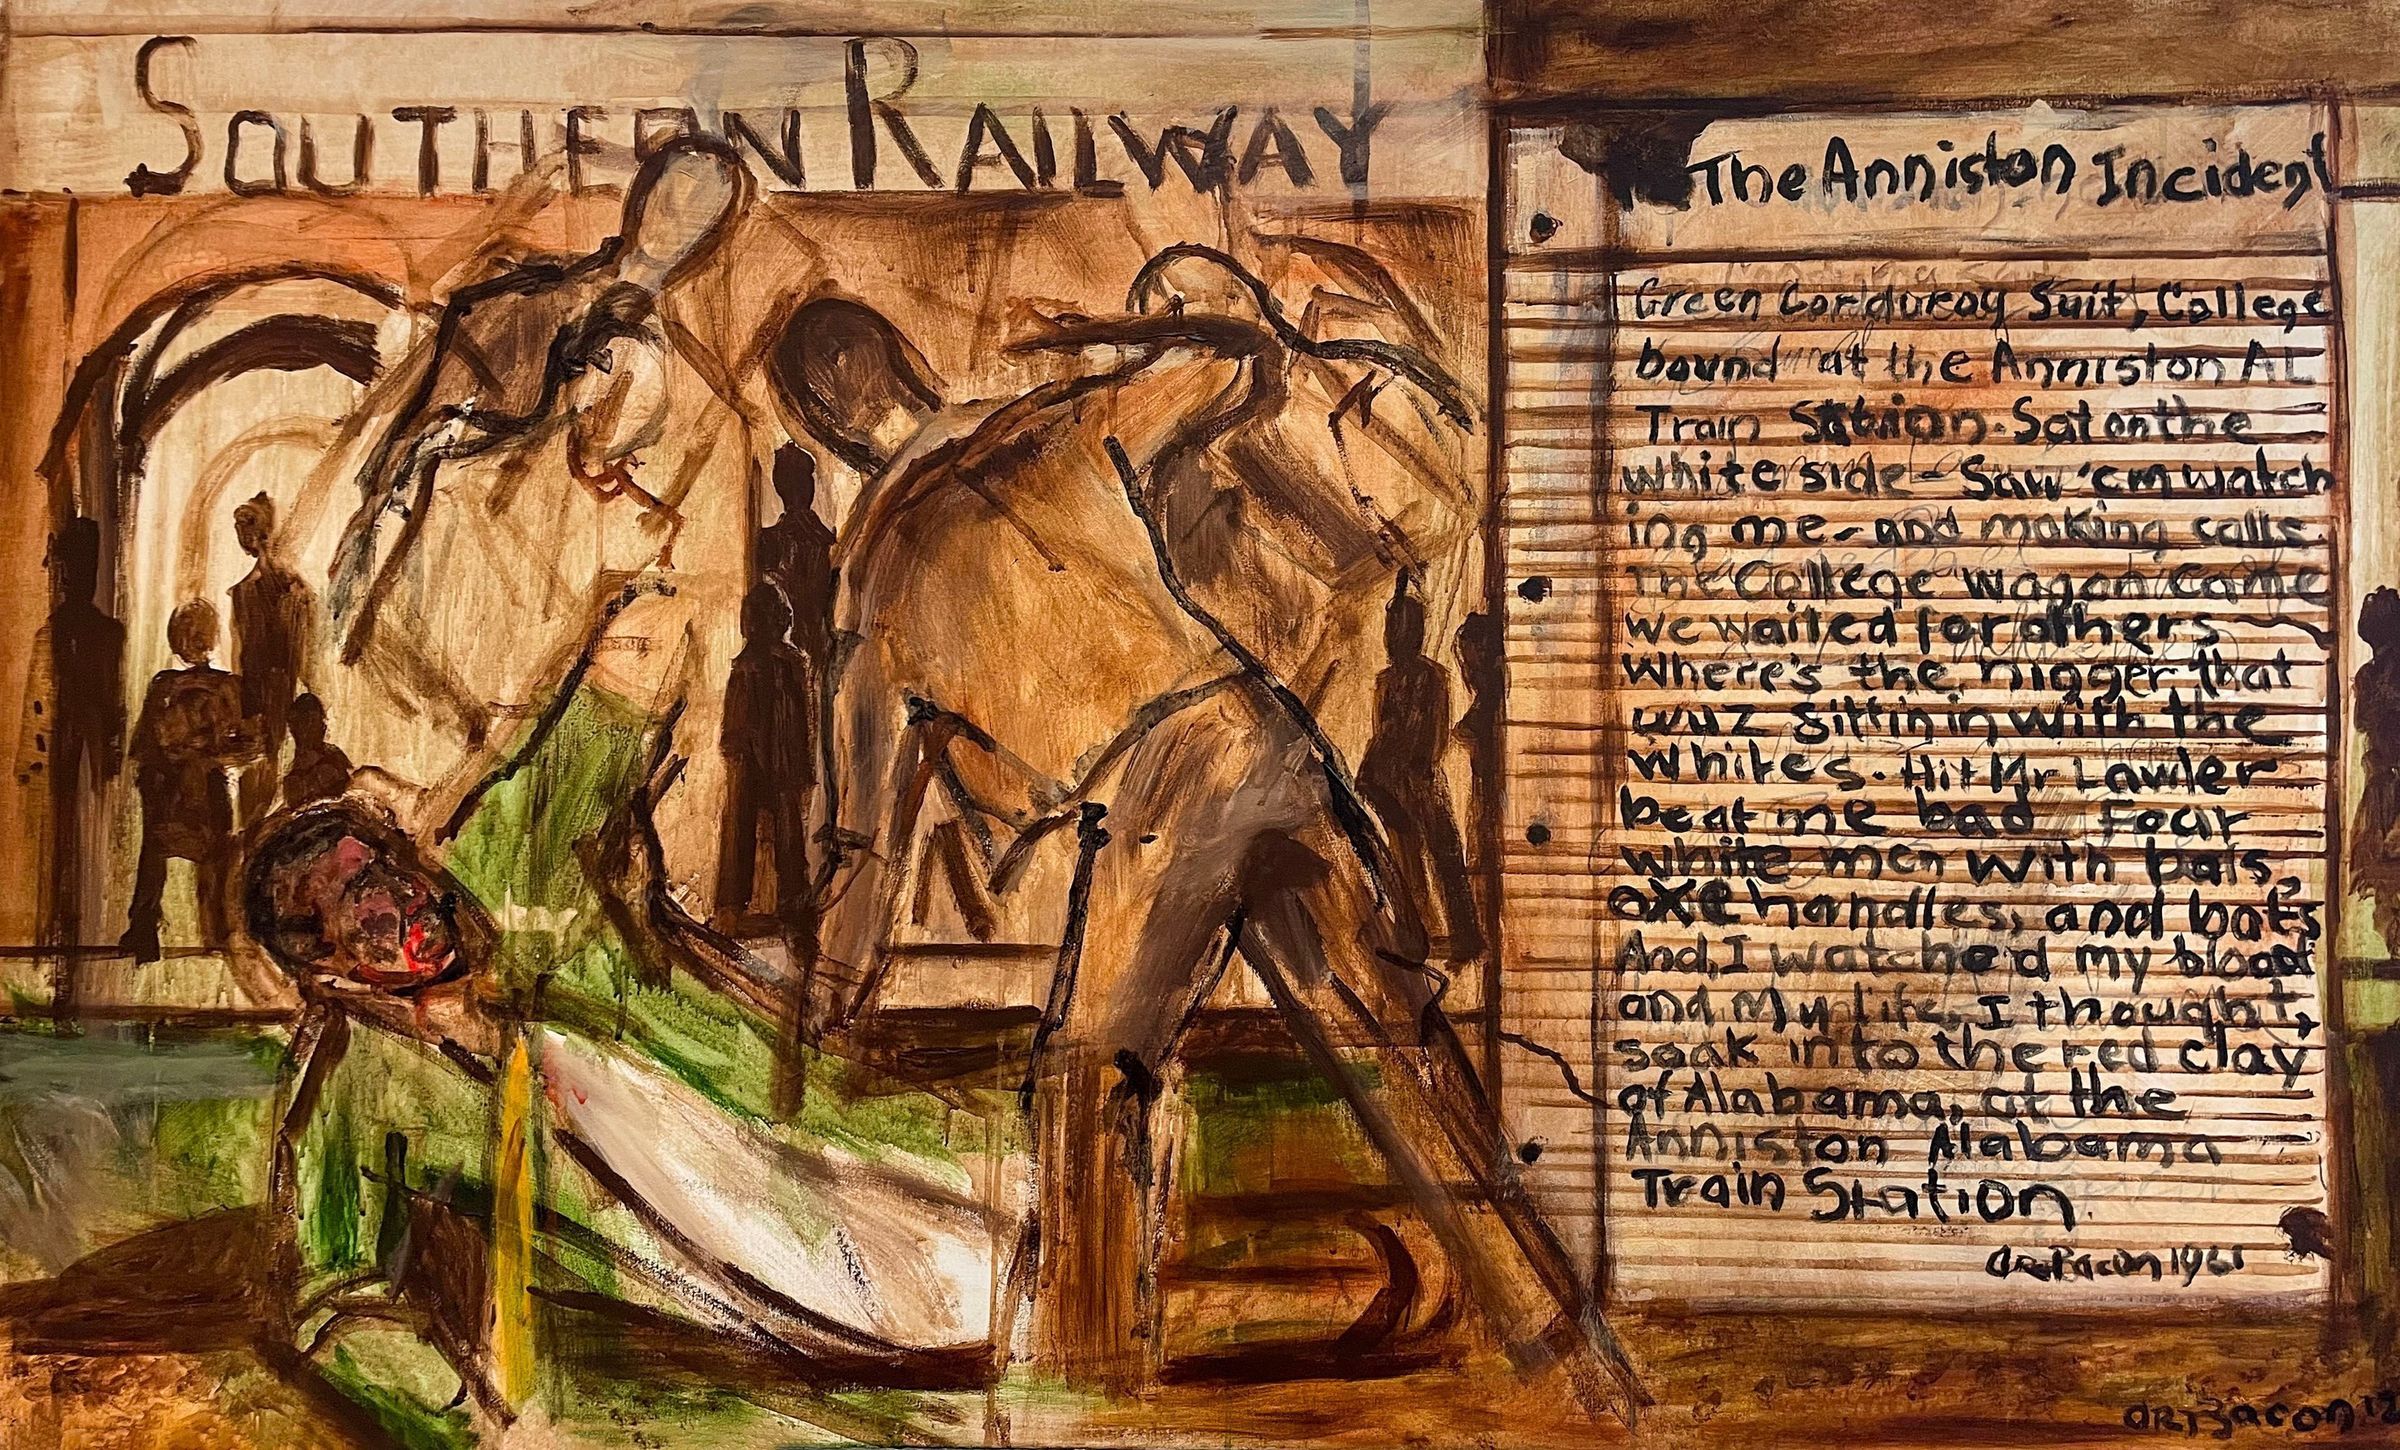 SOUTHERN RAILWAY
The Anniston Incident
Green Corduroy Suit, College
bound at the Anniston AL
Train Station. Sat on the
white side - Saw 'em watch
ing me - and making calls.
The College wagon came
we waited for others
Where's the nigger that
wuz sittin in with the
whites. Hit Mr Lawler
beat me bad Four
white men with bats,
axe handles, and bats
And, I watched my blood
and My life, I thought,
soak into the red clay
of Alabama, at the
Anniston Alabama
Train Station.
Art Bacon 1961
ART Bacon